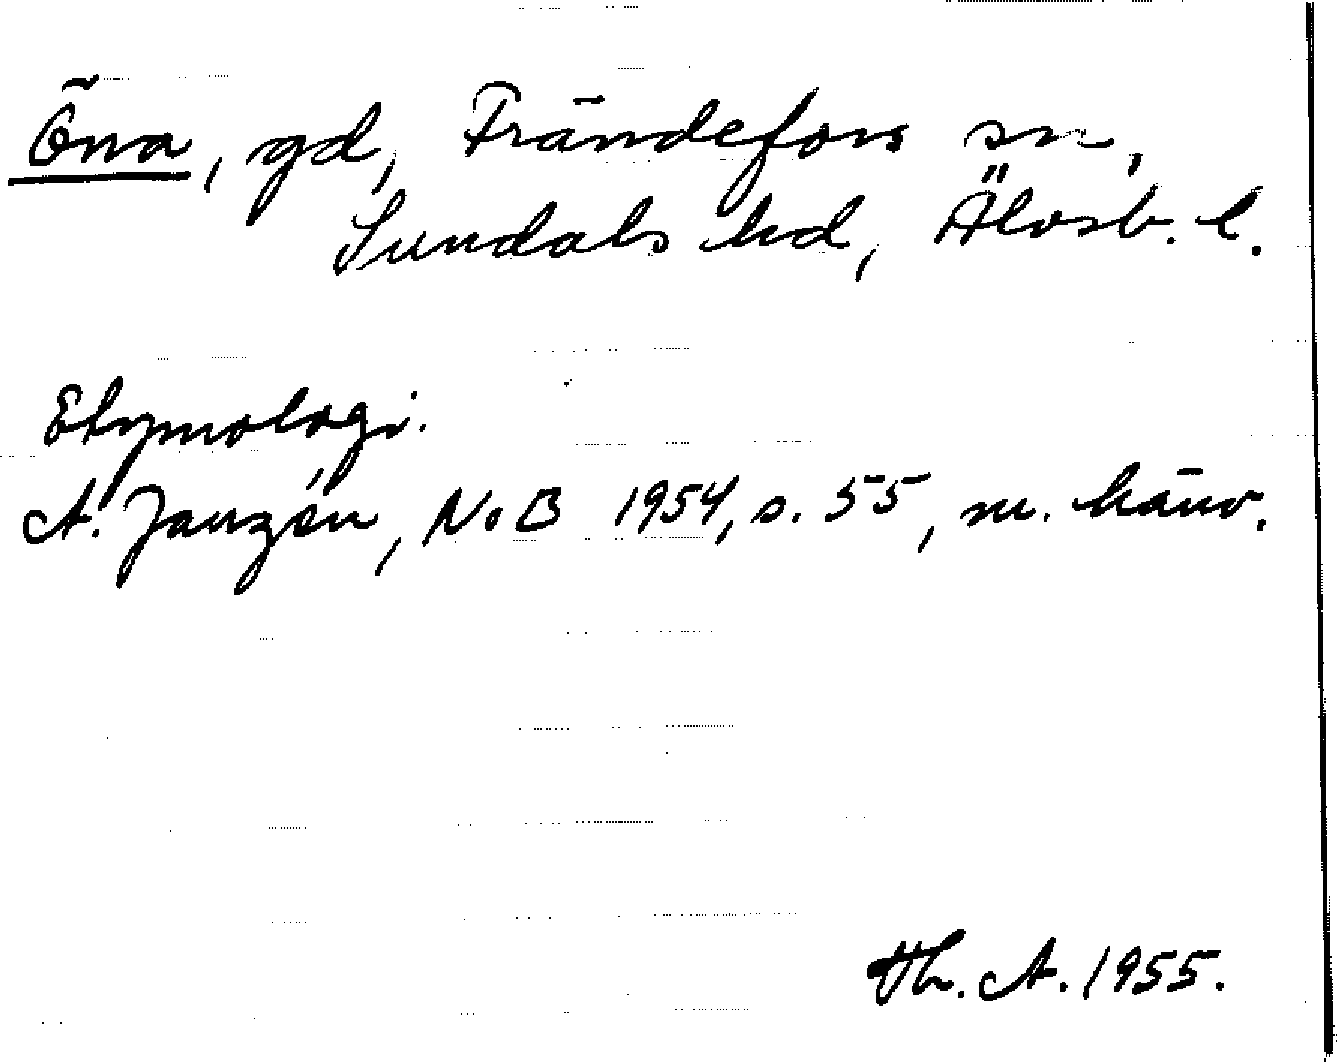 Öna, gd, Frändefors sn,
Sundals hd, Älvsb. l.
Etymologi.
A. Janzén, NoB 1954, s. 55, m. hänv.
Th. A. 1955.